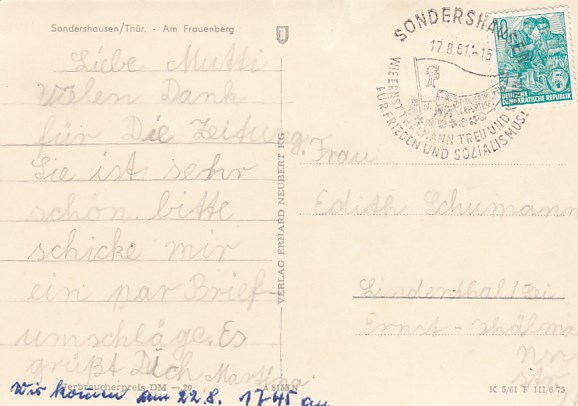 Sondershausen/Thür. - Am Frauenberg
Liebe Mutti
Vielen Dank
für Die Zeitung.
Sie ist sehr
schön. bitte
schicke mir
ein par Brief-
umschläge. Es
grüßt Dich Martina
Wir kommen am 22.8. 1745 an
Verbraucherpreis DM — 20
A 8155 N
VERLAG ERHARD NEUBERT KG
SONDERSHAUSEN
17.8.61.-15
WIE ERNST THÄLMANN TREU UND
FÜR FRIEDEN UND SOZIALISMUS!
10
5
DEUTSCHE
DEMOKRATISCHE REPUBLIK
Frau
Edith Schumann
Lindenthal bei
Ernst-Thälma
Str.
K 5/61 F III 6/73